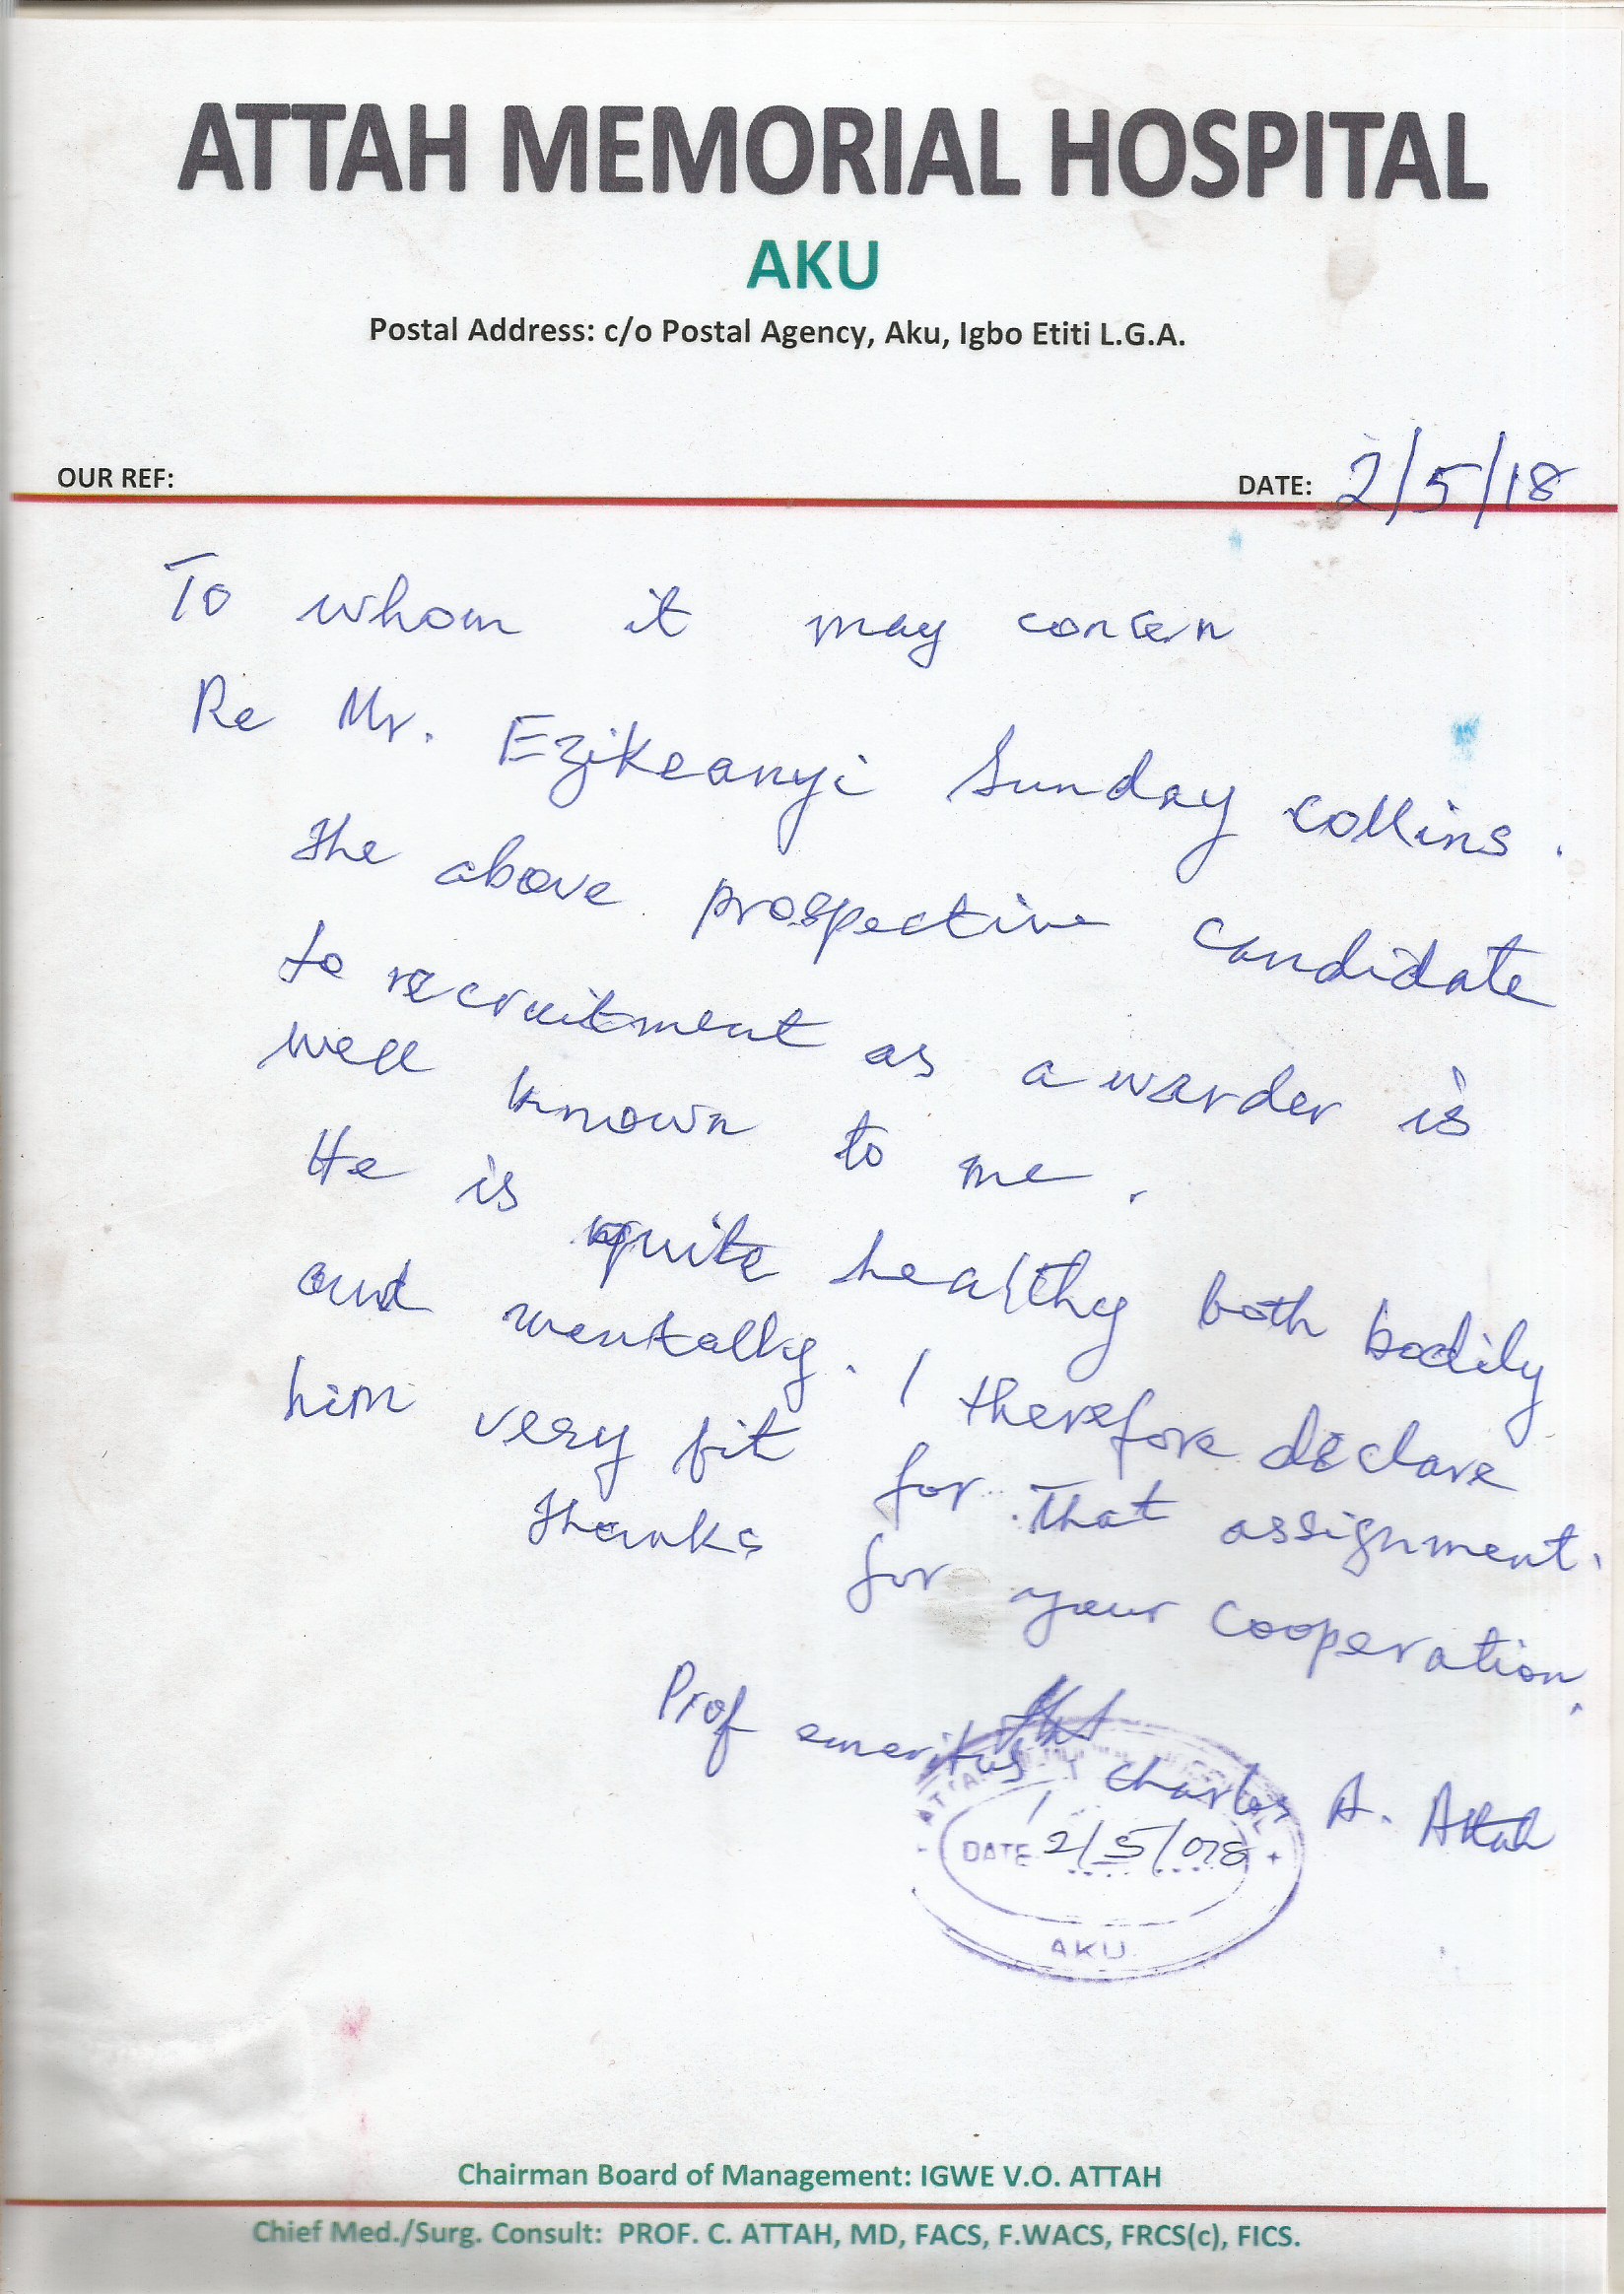 ATTAH MEMORIAL HOSPITAL
AKU
Postal Address: c/o Postal Agency, Aku, Igbo Etiti L.G.A.
OUR REF:
DATE: 2/5/18
To whom it may concern
Re Mr. Ezikeanyi Sunday Collins.
The above prospective candidate
to recruitment as a warder is
well known to me.
He is quite healthy both bodily
and mentally. I therefore declare
him very fit for that assignment.
Thanks for your cooperation.
Prof emeritus Charles A. Attah
ATTAH
DATE 2/5/018
AKU
Chairman Board of Management: IGWE V.O. ATTAH
Chief Med./Surg. Consult: PROF. C. ATTAH, MD, FACS, F.WACS, FRCS(c), FICS.